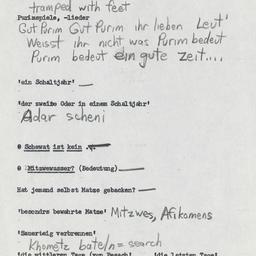 tramped with feet
Purimspiele, -lieder
Gut Purim Gut Purim ihr lieben Leut'
Weisst ihr nicht was Purim bedeut
Purim bedeut ein gute zeit....
'ein Schaltjahr'
'der zweite Oder in einem Schaltjahr'
Adar scheni
@ Schewat ist kein
@ Mitzwewasser? (Bedeutung)
Hat jemand selbst Matze gebacken?
'besondrs bewahrte Matze' Mitzwes, Afikomens
'Sauerteig verbrennen'
Khometz bateln = search
'die mittleren Tage (von Pesach)' 'die letzten Tage'